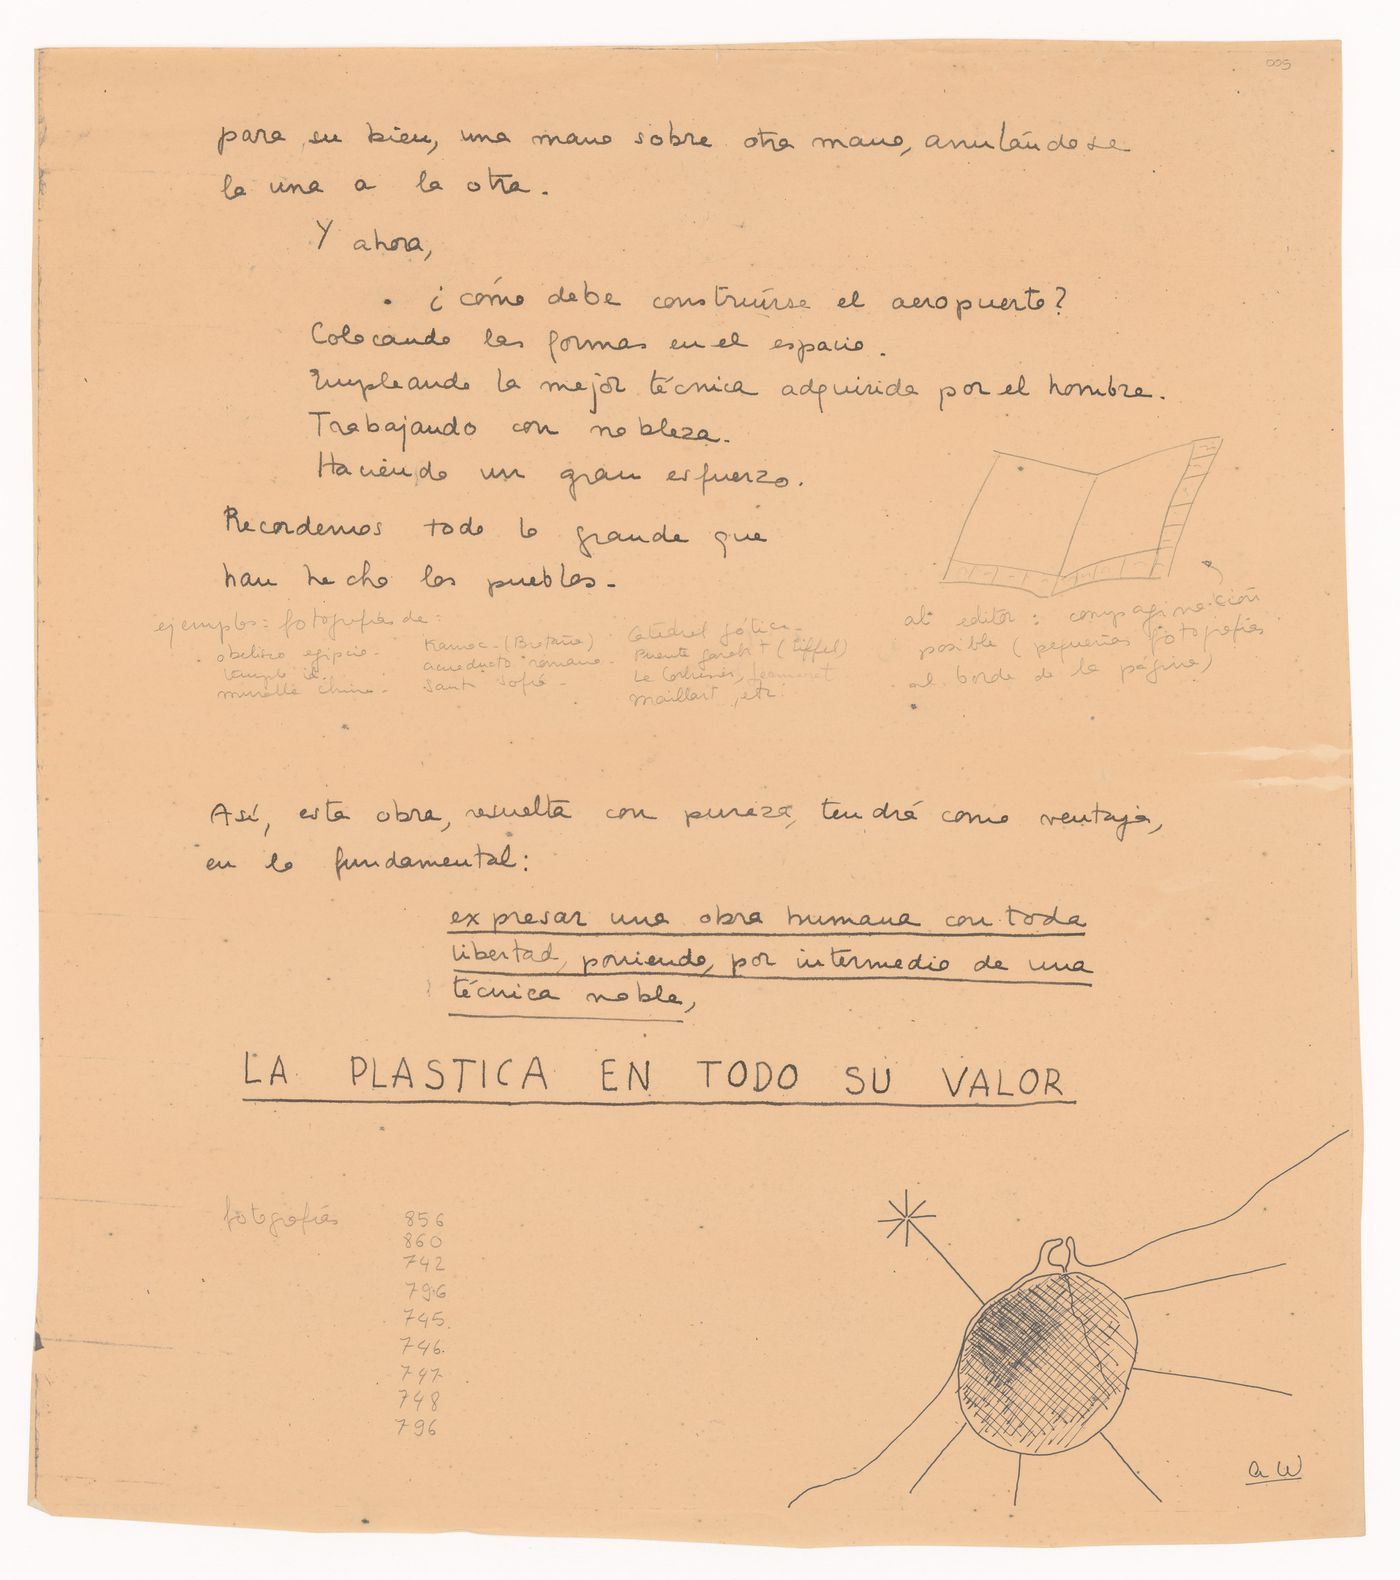 005
para su bien, una mano sobre otra mano, anulándose
la una a la otra.
Y ahora,
¿cómo debe construírse el aeropuerto?
Colocando las formas en el espacio.
Empleando la mejor técnica adquirida por el hombre.
Trabajando con nobleza.
Haciendo un gran esfuerzo.
Recordemos todo lo grande que
han hecho los pueblos.
ejemplos: fotografías de:
obelisco egipcio.
templo id.
muralla china.
Karnac. (Bretaña)
acueducto romano.
Santa Sofía.
Catedral gótica.
Puente Garabit (Eiffel)
Le Corbusier, Jeanneret
Maillart, etc.
al editor: compaginación
posible (pequeñas fotografías
al borde de la página)
Así, esta obra, resuelta con pureza, tendrá como ventaja,
en lo fundamental:
expresar una obra humana con toda
libertad, poniendo, por intermedio de una
técnica noble,
LA PLASTICA EN TODO SU VALOR
fotografías 856
860
742
796
745.
746.
747
748
796
a W